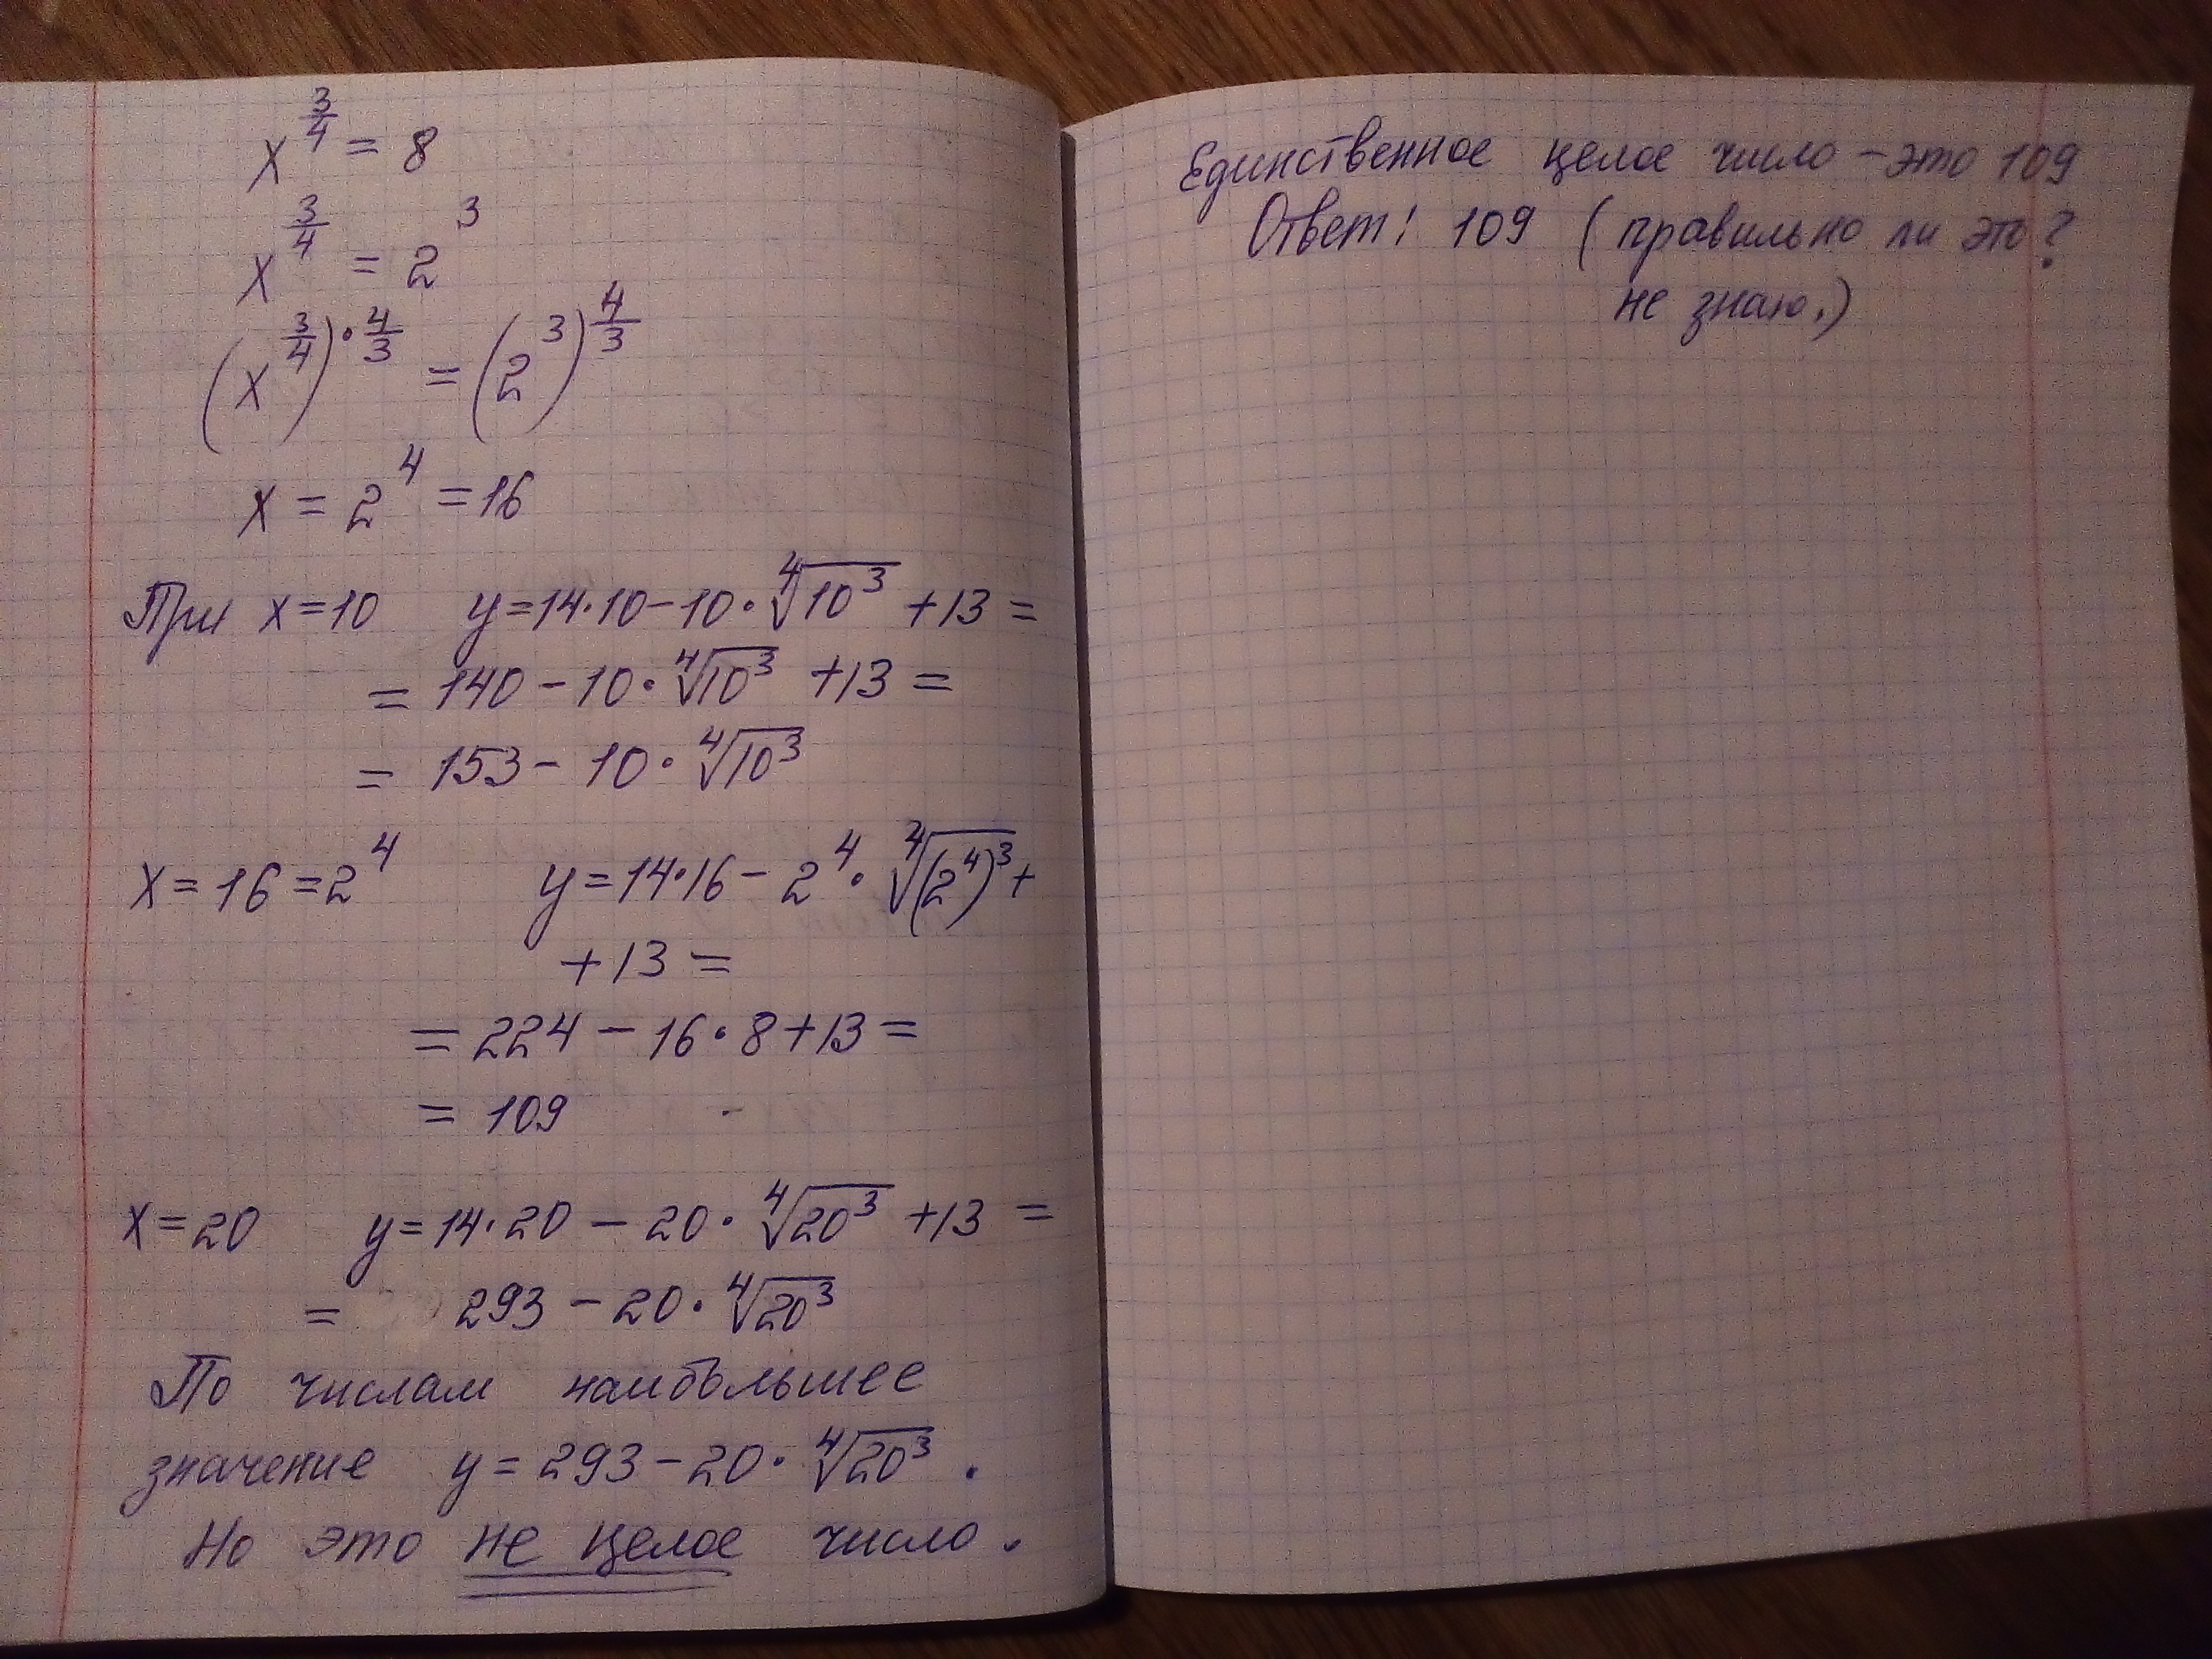 x^{3/4} = 8
x^{3/4} = 2^3
(x^{3/4})^{·4/3} = (2^3)^{4/3}
x = 2^4 = 16
При x=10 y=14·10−10·∜(10^3) +13 =
= 140−10·∜(10^3) +13 =
= 153−10·∜(10^3)
x=16=2^4 y=14·16−2^4·∜((2^4)^3)+
+13=
=224−16·8+13=
=109
x=20 y=14·20−20·∜(20^3) +13 =
= 293−20·∜(20^3)
По числам наибольшее
значение y=293−20·∜(20^3).
Но это не целое число.
Единственное целое число – это 109
Ответ: 109 (правильно ли это?
не знаю.)